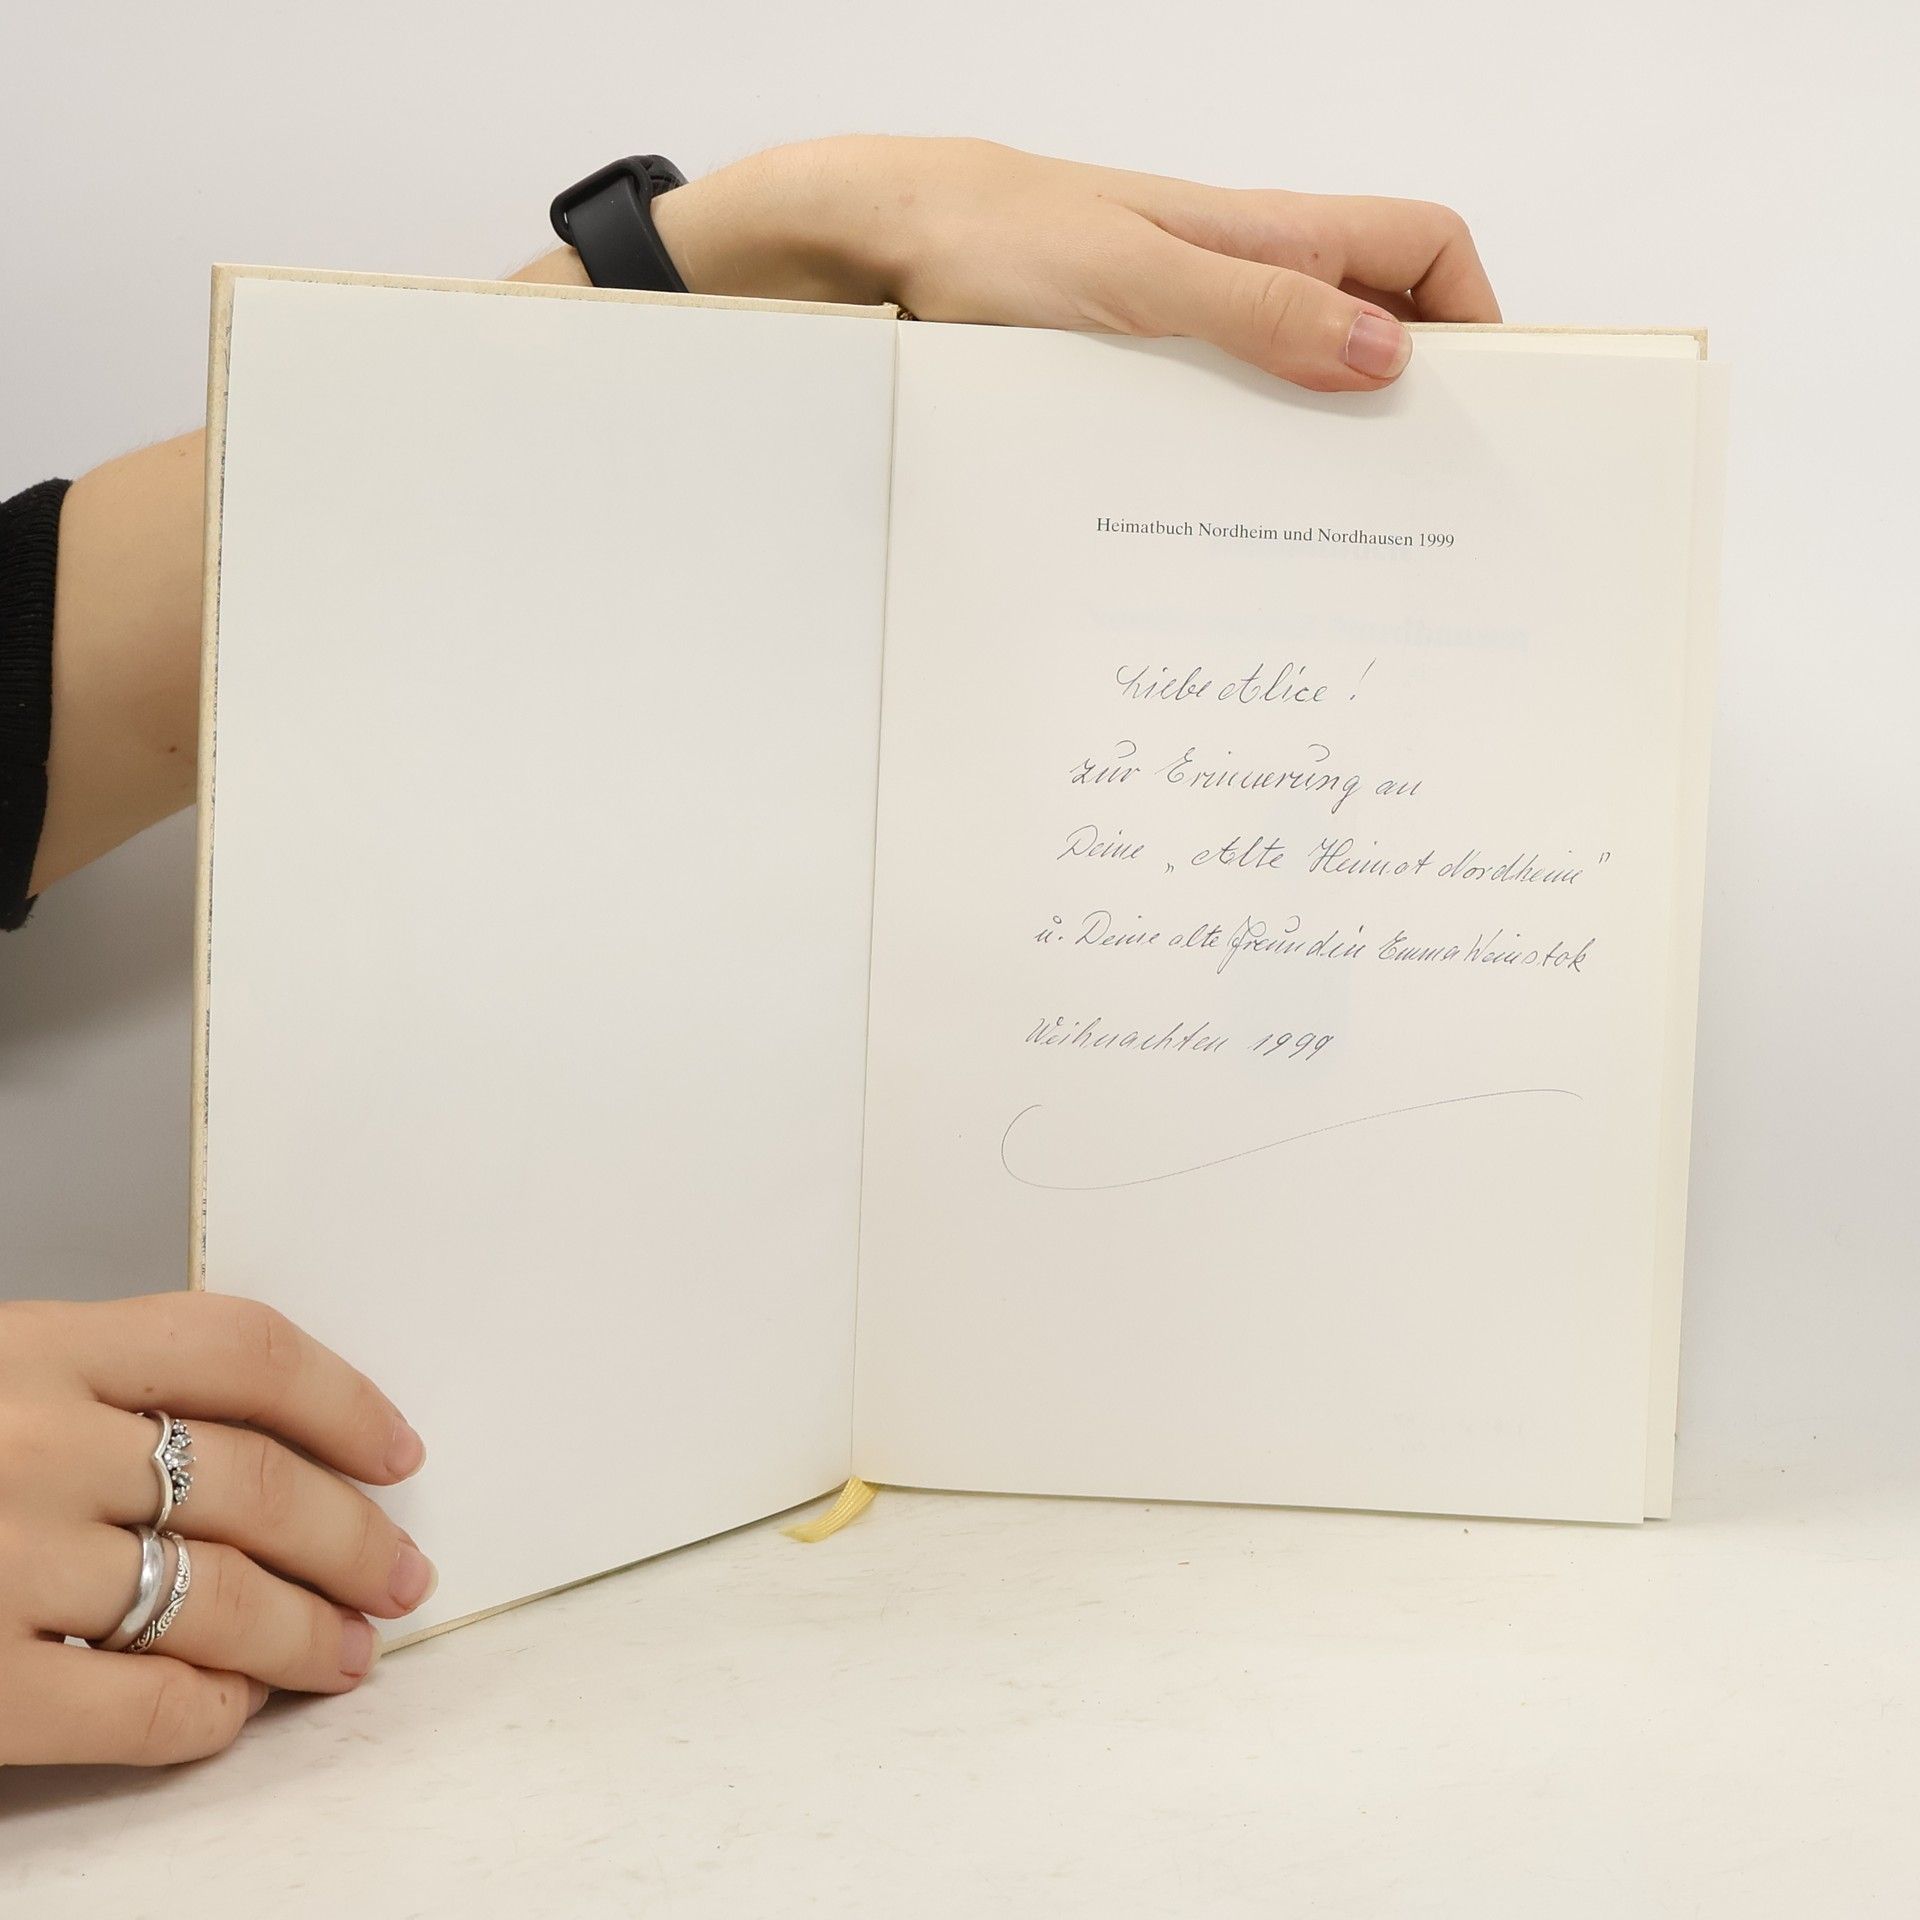 Heimatbuch Nordheim und Nordhausen 1999
Liebe Alice !
zur Erinnerung an
Deine „Alte Heimat Nordheim"
u. Deine alte Freundin Emma Weinstok
Weihnachten 1999